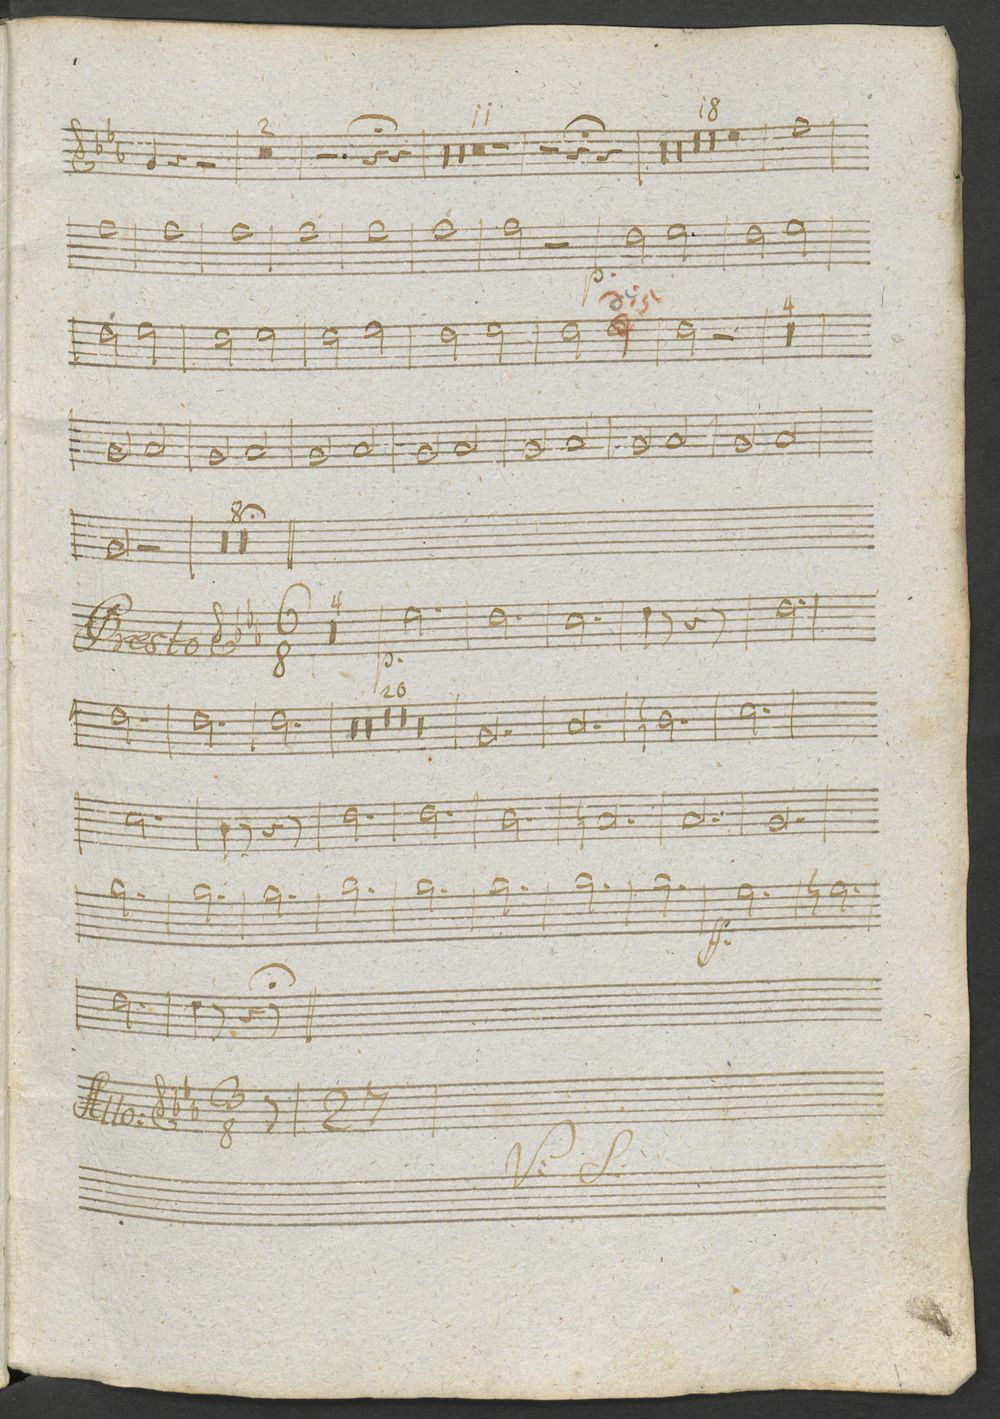 2 11 18
p.
4
8
Presto 6 8 4
p.
20
ff.
Allo: 3 8 2
V: S.